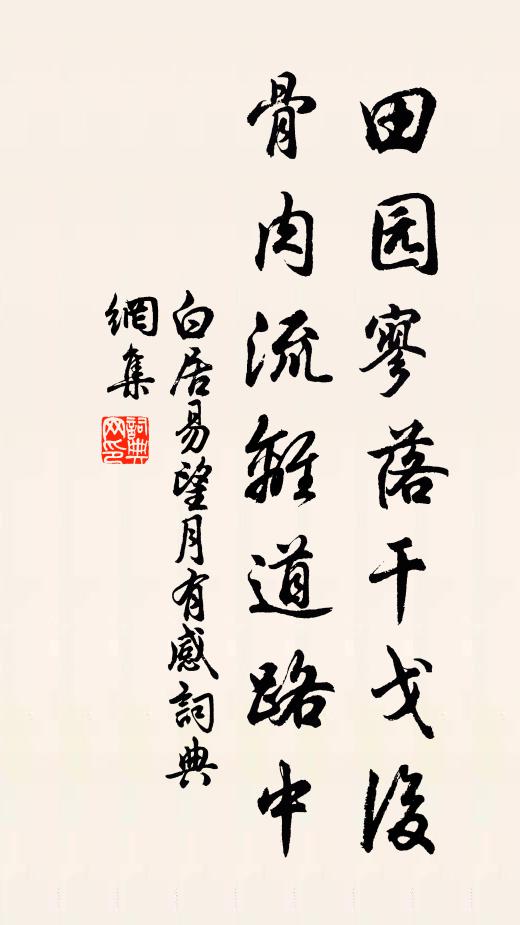 田园寥落干戈後
骨肉流離道路中
白居易望月有感詞典
網集
詞典網印